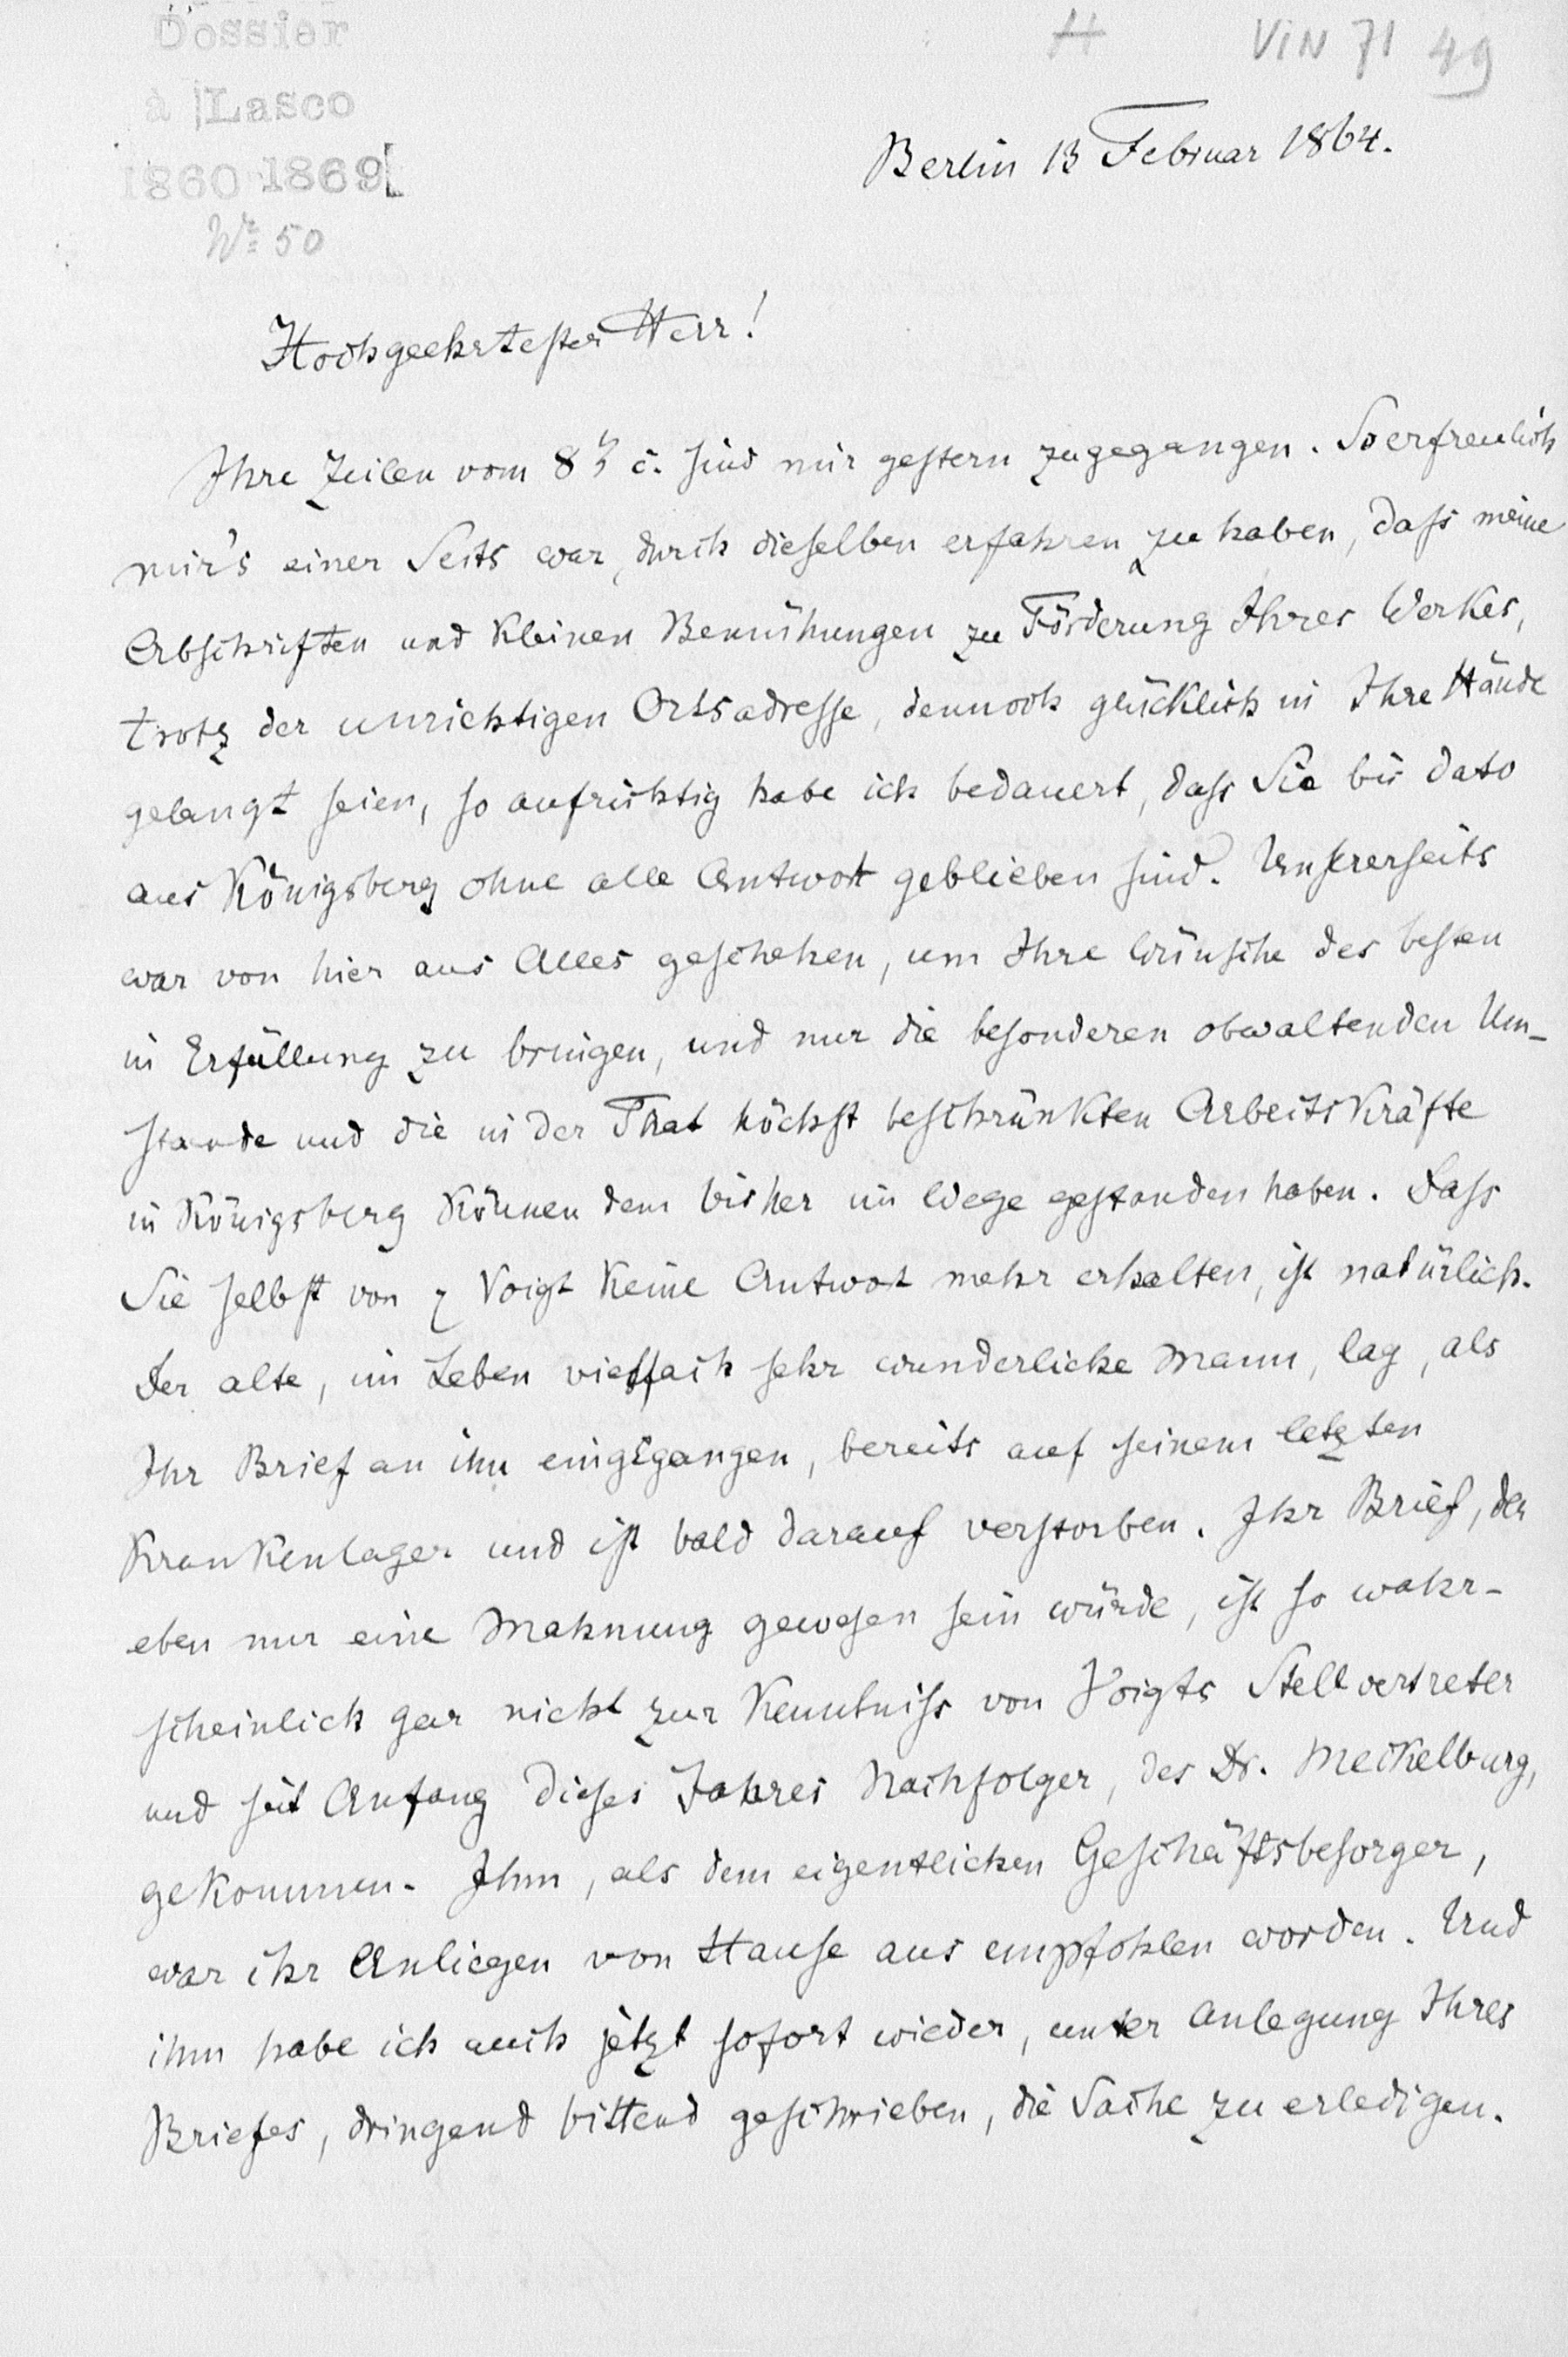 Dossier
à Lasco
1860 1869
Nr 50
H
VIN 71 49
Berlin 13 Februar 1864.
Hochgeehrtester Herr!
Ihre Zeilen vom 8 c. sind mir gestern zugegangen. So erfreulich
mir's einer Seits war, durch dieselben erfahren zu haben, dass meine
Abschriften und kleinen Bemühungen zu Förderung Ihres Werkes,
trotz der unrichtigen Ortsadresse, dennoch glücklich in Ihre Hände
gelangt seien, so aufrichtig habe ich bedauert, dass Sie bis dato
aus Königsberg ohne alle Antwort geblieben sind. Unsrerseits
war von hier aus Alles geschehen, um Ihre Wünsche des besten
in Erfüllung zu bringen, und nur die besonderen obwaltenden Um-
stande und die in der That höchst beschränkten Arbeitskräfte
in Königsberg können dem bisher im Wege gestanden haben. Dass
Sie selbst von Voigt keine Antwort mehr erhalten, ist natürlich.
Der alte, im Leben vielfach sehr wunderliche Mann, lag, als
Ihr Brief an ihn eingegangen, bereits auf seinem letzten
Krankenlager und ist bald darauf verstorben. Ihr Brief, der
eben nur eine Mahnung gewesen sein würde, ist so wahr-
scheinlich gar nicht zur Kenntniss von Voigts Stellvertreter
und seit Anfang dieses Jahres Nachfolger, des Dr. Meckelburg,
gekommen. Ihm, als dem eigentlichen Geschäftsbesorger,
war ihr Anliegen von Hause aus empfohlen worden. Und
ihm habe ich auch jetzt sofort wieder, unter Anlegung Ihres
Briefes, dringend bittend geschrieben, die Sache zu erledigen.